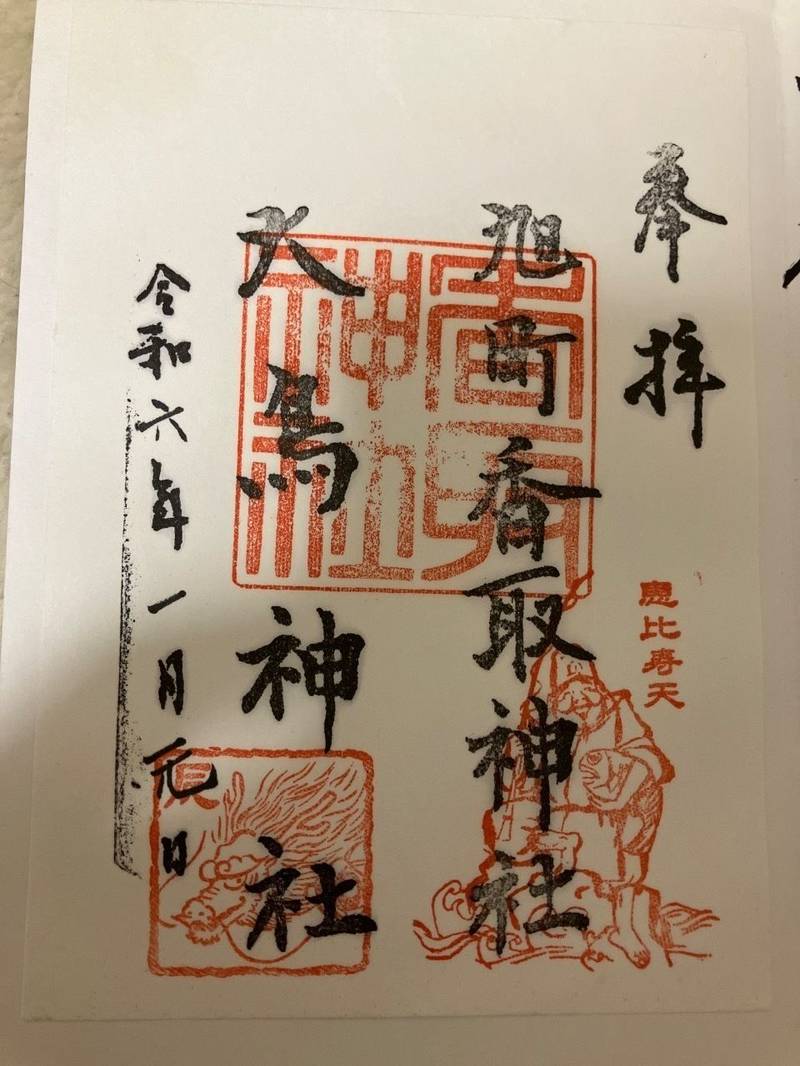 奉拝
旭町香取神社
大鳥神社
令和六年一月元日
恵比寿天
香取神社